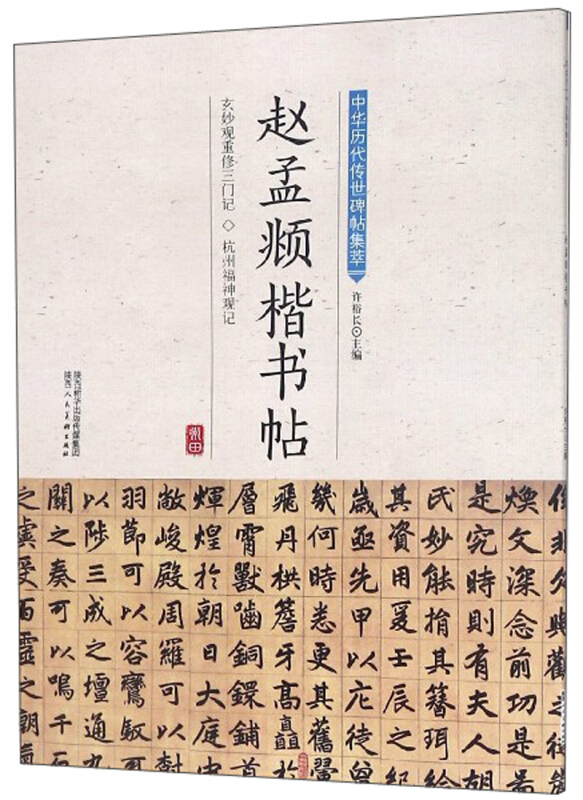 中华历代传世碑帖集萃
许裕长⊙主编
赵孟頫楷书帖
玄妙观重修三门记◇杭州福神观记
陕西新华出版传媒集团
陕西人民美术出版社
煥文深念前功是
是究時則有夫人胡
氏妙能捐其簪珥給
其資用爰壬辰之紀
歲亟先甲以庀徒曾
幾何時悉更其舊翬
飛丹栱簷牙高矗於
層霄獸嚙銅鐶鋪首
煇煌於朝日大庭中
敞峻殿周羅可以樹
羽節可以容鸞馭可
以陟三成之壇通九
關之奏可以鳴千石
之虡受百靈之朝氣